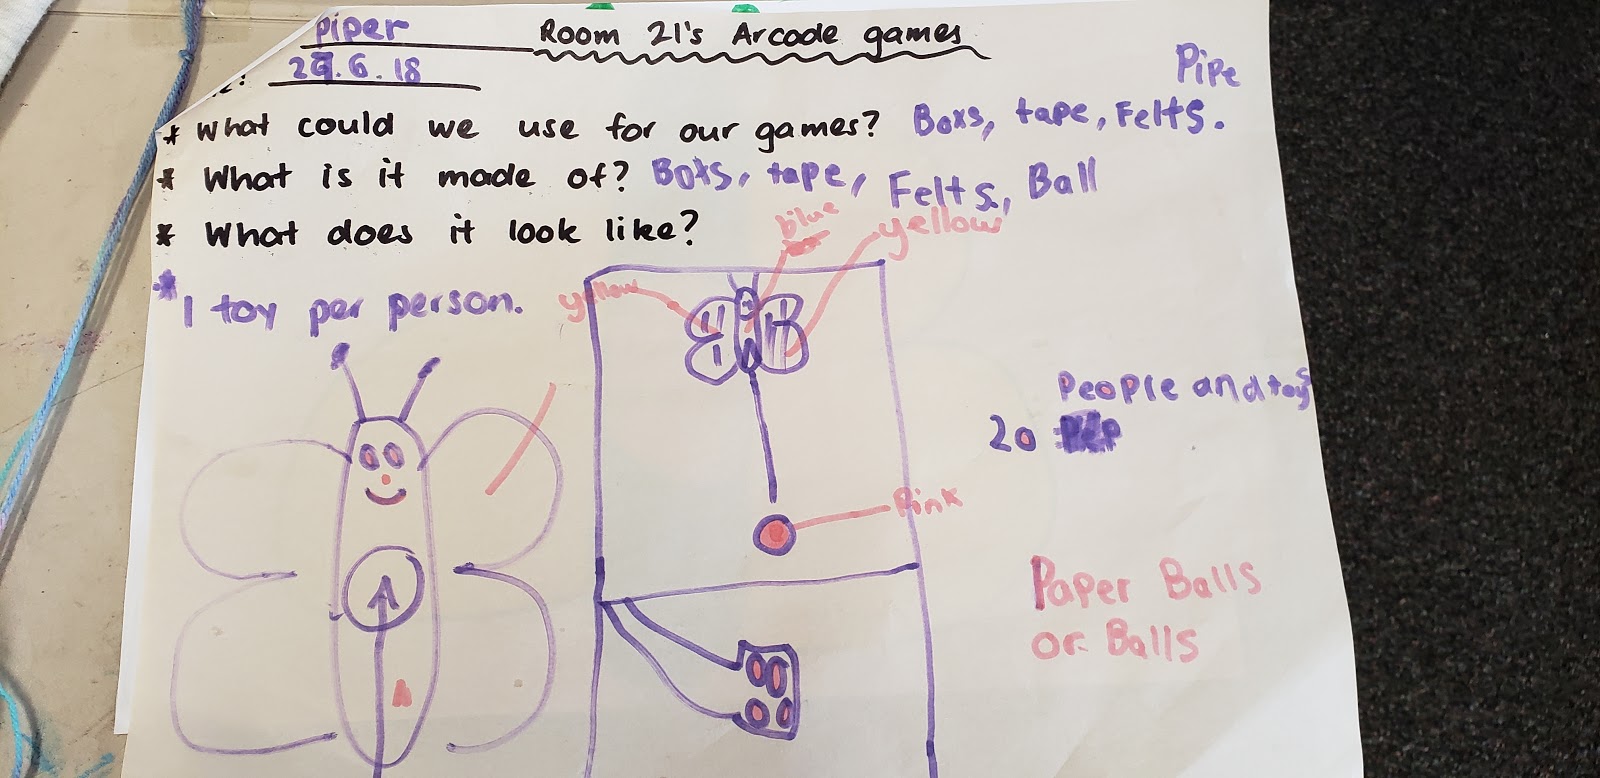 Piper
Room 21's Arcade games
.6.18
Pipe
* What could we use for our games? Boxs, tape, Felts.
* What is it made of? Boxs, tape, Felts, Ball
* What does it look like?
blue
yellow
* 1 toy per person.
yellow
People and toys
20
Pink
Paper Balls
or Balls